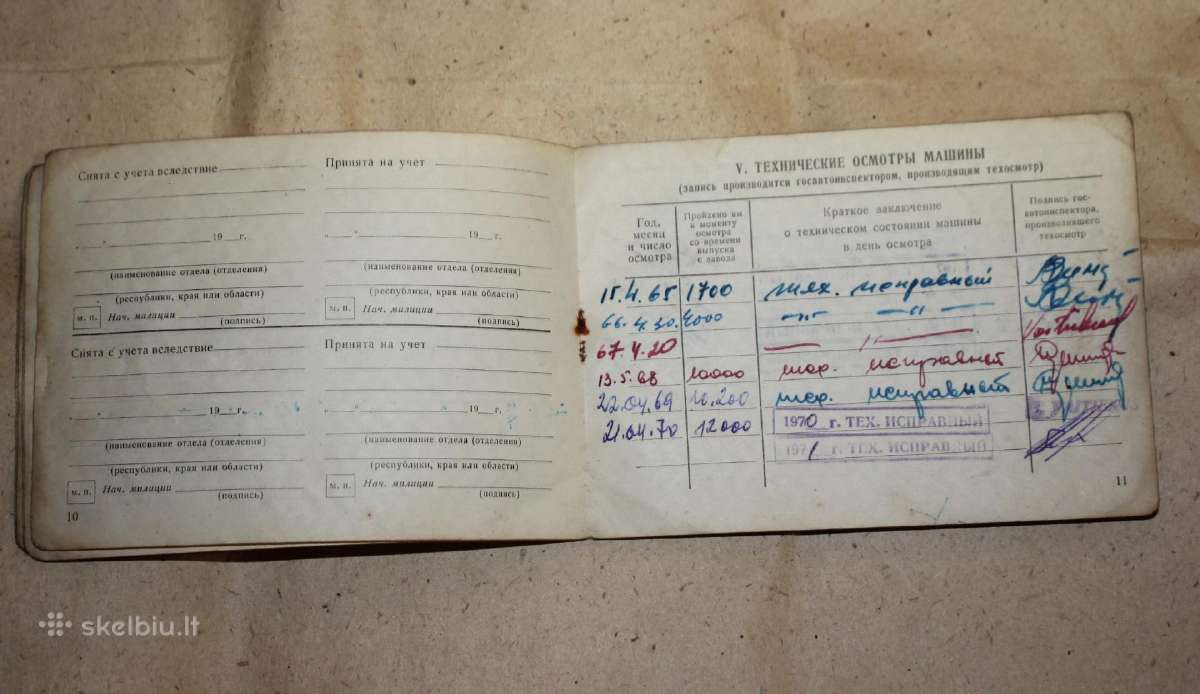 Снята с учета вследствие
"  " 19 г.
(наименование отдела (отделения)
(республики, края или области)
м. п. Нач. милиции
(подпись)
Снята с учета вследствие
"  " 19 г.
(наименование отдела (отделения)
(республики, края или области)
м. п. Нач. милиции
(подпись)
10
Принята на учет
"  " 19 г.
(наименование отдела (отделения)
(республики, края или области)
м. п. Нач. милиции
(подпись)
Принята на учет
"  " 19 г.
(наименование отдела (отделения)
(республики, края или области)
м. п. Нач. милиции
(подпись)
V. ТЕХНИЧЕСКИЕ ОСМОТРЫ МАШИНЫ
(запись производится госавтоинспектором, производящим техосмотр)
Год, месяц и число осмотра
Пройдено км к моменту осмотра со времени выпуска с завода
Краткое заключение о техническом состоянии машины в день осмотра
Подпись гос-автоинспектора, производившего техосмотр
15.4.65 1700 тех. исправный
66.4.30. 4000 —"— —"—
67.4.20
13.5.68 10000 тех. исправен
22.04.69 10.200 тех. исправный
21.04.70 12000 1970 г. ТЕХ. ИСПРАВНЫЙ
1971 г. ТЕХ. ИСПРАВНЫЙ
11
skelbiu.lt